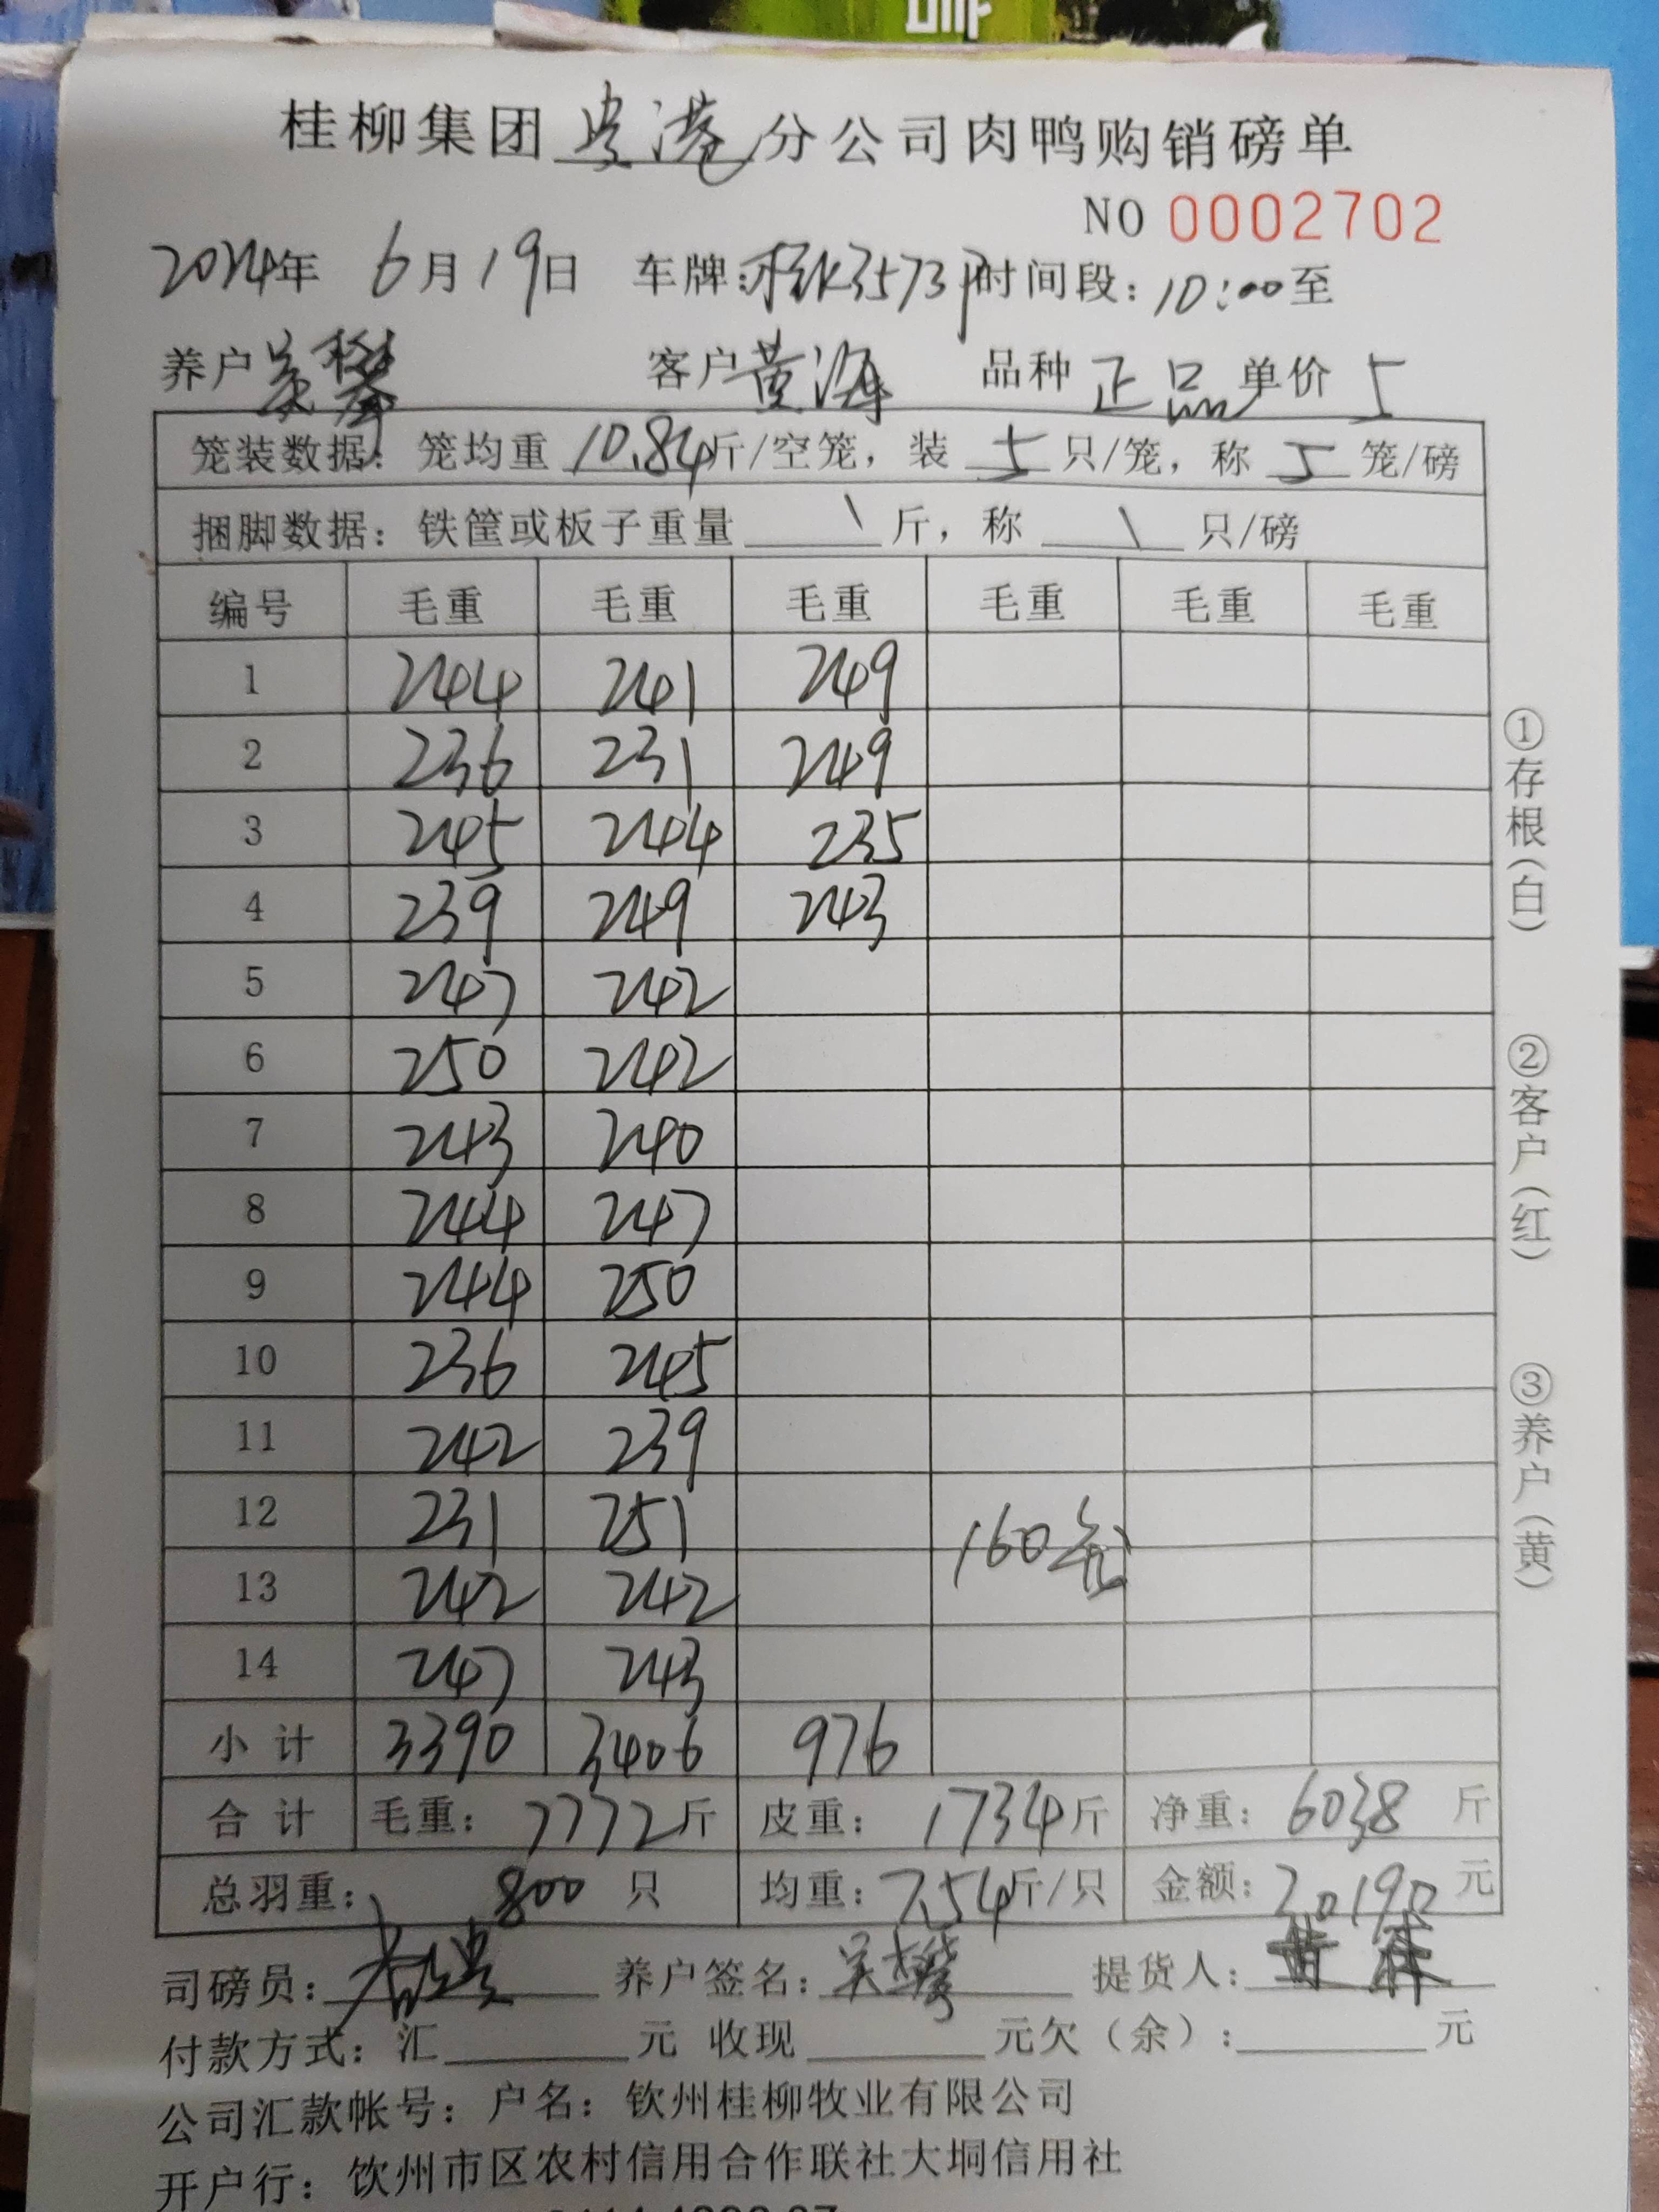 桂柳集团贵港分公司肉鸭购销磅单
NO 0002702
2024年 6月19日 车牌: 时间段：10:00至
养户 吴攀 客户 黄海 品种 正品 单价 5
笼装数据：笼均重 10.84斤/空笼，装 5 只/笼，称 5 笼/磅
捆脚数据：铁筐或板子重量 \ 斤，称 \ 只/磅
编号 毛重 毛重 毛重 毛重 毛重 毛重
1 244 241 249
2 236 231 249
3 245 244 235
4 239 249 243
5 247 242
6 250 242
7 243 240
8 244 247
9 244 250
10 236 245
11 242 239
12 231 251
160
13 242 242
14 247 243
小计 3390 3406 976
合计 毛重：7772斤 皮重：1734斤 净重：6038 斤
总羽重：800 只 均重：7.54斤/只 金额：20190 元
司磅员： 养户签名：吴攀 提货人：黄
付款方式：汇 元 收现 元欠（余）： 元
公司汇款帐号：户名：钦州桂柳牧业有限公司
开户行：钦州市区农村信用合作联社大垌信用社
①存根（白） ②客户（红） ③养户（黄）